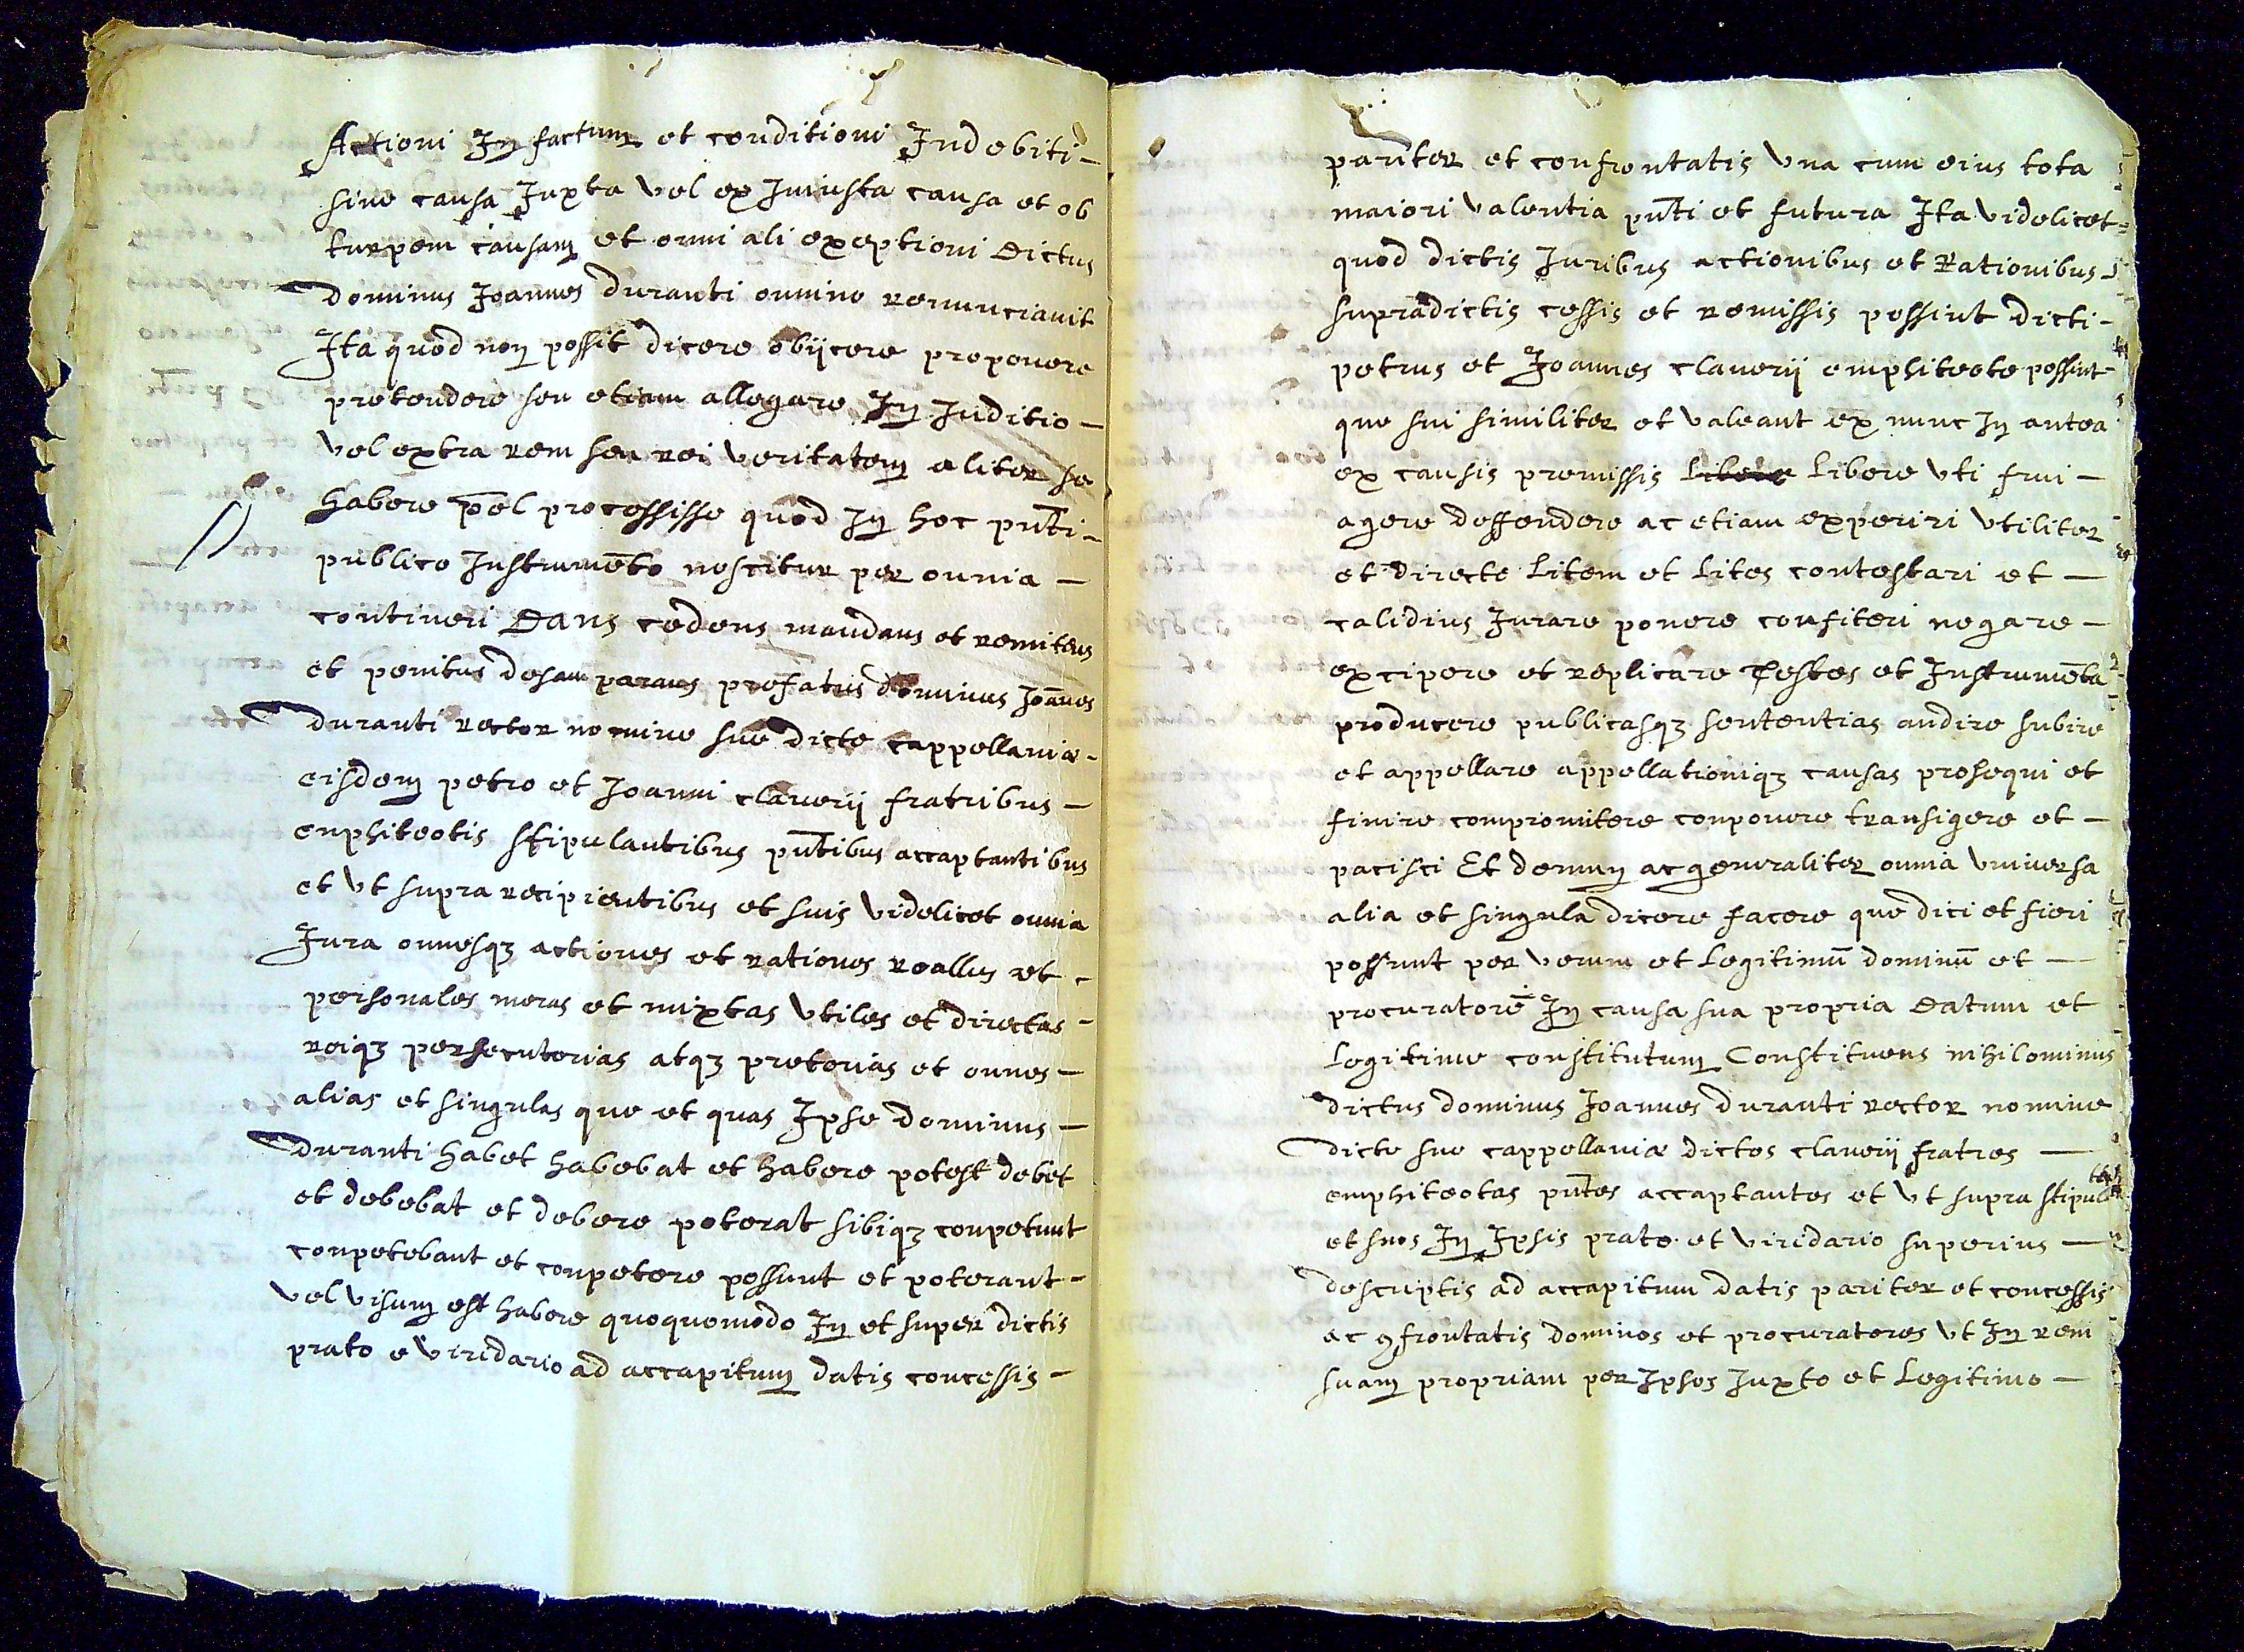 Actioni In factum et conditioni Indebiti -
sine causa Juxta vel ex Iniusta causa et ob
turpem causam et omni ali exceptioni Dictus
dominus Joannes duranti omnino renunciavit
Ita quod non possit dicere obijcere proponere
pretendere seu etiam allegare In Juditio -
vel extra rem seu rei veritatem aliter se
habere vel processisse quod In hoc pn̄ti -
publico Instrumēto noscitur per omnia -
contineri Dans cedens mandans et remitens
et penitus desamparans prefatus dominus Joānes
duranti rector nomine sue dicte cappellanie -
eisdem petro et Joanni claverij fratribus -
enphiteotis stipulantibus pn̄tibus accaptantibus
et vt supra recipientibus et suis videlicet omnia
Jura omnesqꝫ actiones et rationes realles et -
personales meras et mixtas vtiles et directas -
reiqꝫ persecutorias atqꝫ pretorias et omnes -
alias et singulas que et quas Ipse dominus -
duranti habet habebat et habere potest debet
et debebat et debere poterat sibiqꝫ conpetunt
conpetebant et conpetere possunt et poterant -
vel visum est habere quoquomodo In et super dictis
prato e viridario ad accapitum datis concessis -
pariter et confrontatis vna cum eius tota
maiori valentia pn̄ti et futura Ita videlicet =
quod dictis Juribus actionibus et Rationibus -
supradictis cessis et remissis possint dicti -
petrus et Joannes claverij emphiteote possint -
que sui similiter et valeant ex nunc In antea
ex causis premissis Libere Libere vti frui -
agere deffendere ac etiam experiri vtiliter
et directe Litem et Lites contestari et -
calidius Jurare ponere confiteri negare -
excipere et replicare testes et Instrumēta
producere publicasqꝫ sententias audire subire
et appellare appellationiqꝫ causas prosequi et
finire compromitere conponere transigere et -
pacisci Et demum ac generaliter omnia vniversa
alia et singula dicere facere que dici et fieri
possunt per verum et Legitimū dominū et -
procuratorē In causa sua propria Datum et
Legitime constitutum Constituens nihilominus
dictus dominus Joannes duranti rector nomine
dicte sue cappellanie dictos claverij fratres -
emphiteotas pn̄tes accaptantes et vt supra stipul
et suos In Ipsis prato et viridario superius -
descriptis ad accapitum datis pariter et concessis
ac ꝯfrontatis dominos et procuratores vt In rem
suam propriam per Ipsos Juxte et Legitime -